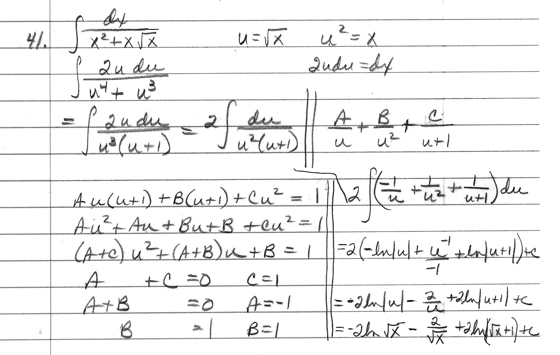 41. ∫ dx/(x²+x√x)    u=√x    u²=x
∫ 2u du/(u⁴+u³)    2udu=dx
= ∫ 2u du/(u³(u+1)) = 2∫ du/(u²(u+1)) || A/u + B/u² + C/(u+1)
Au(u+1)+B(u+1)+Cu² = 1
Au²+Au+Bu+B+Cu²=1
(A+C)u²+(A+B)u+B = 1
A +C=0    C=1
A+B =0    A=-1
B =1    B=1
2∫(-1/u + 1/u² + 1/(u+1))du
=2(-ln|u|+u⁻¹/-1+ln|u+1|)+c
=-2ln|u|-2/u+2ln|u+1|+c
=-2ln√x-2/√x+2ln(√x+1)+c